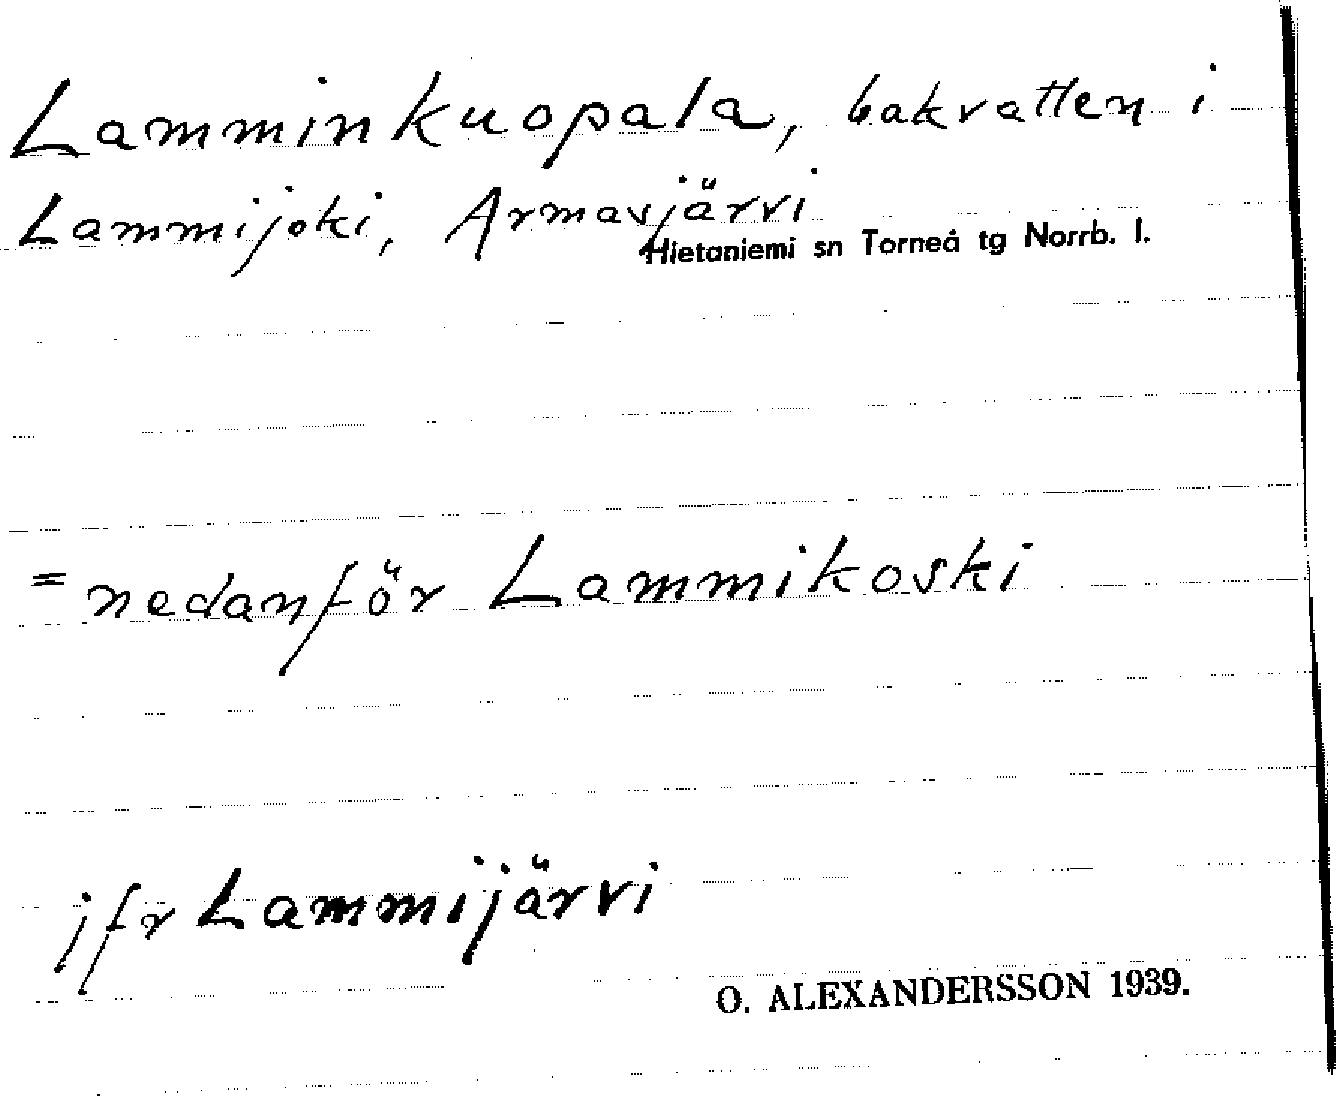 Lamminkuopala, bakvatten i
Lammijoki, Armasjärvi
Hietaniemi sn Torneå tg Norrb. l.
= nedanför Lammikoski
jfr Lammijärvi
O. ALEXANDERSSON 1939.